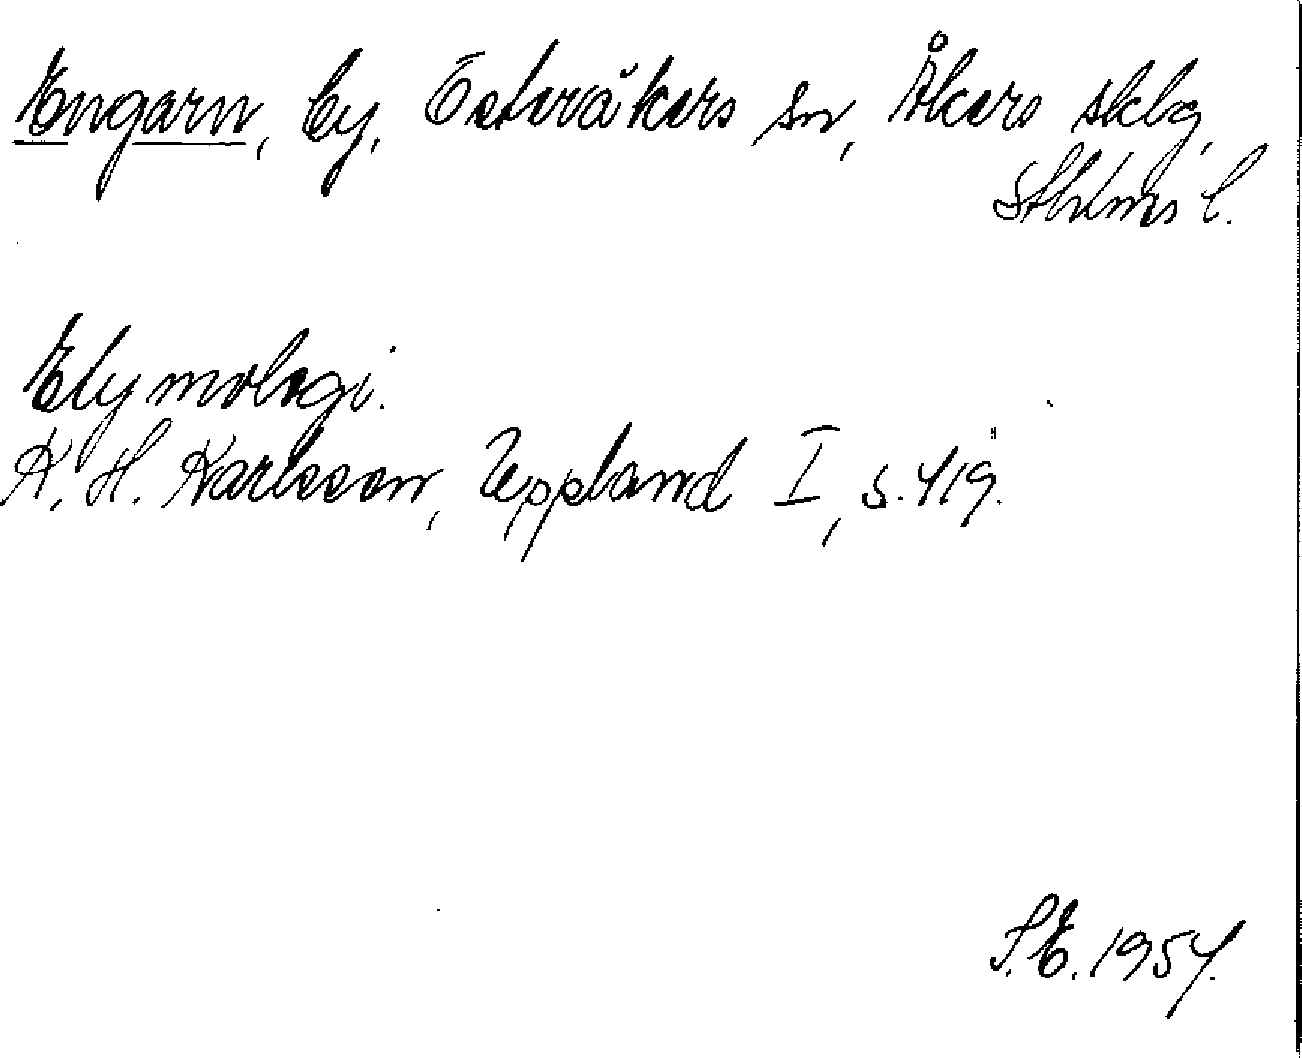 Engarn, by, Österåkers sn, Åkers skbg,
Sthlms l.
Etymologi.
K. H. Karlsson, Uppland I, s. 419.
S.E. 1954.